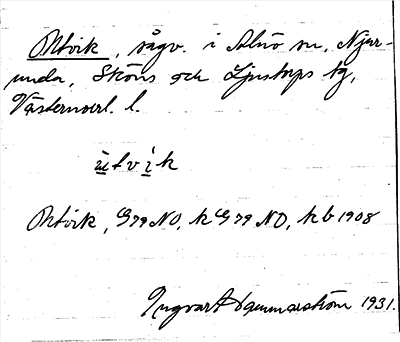 Utvik, sågv. i Alnö sn, Njur-
unda, Sköns och Ljustorps tg,
Västernorrl. l.
ùtvìk
Utvik, G79NO, kG79NO, kb 1908
Ingvar Hammarström 1931.